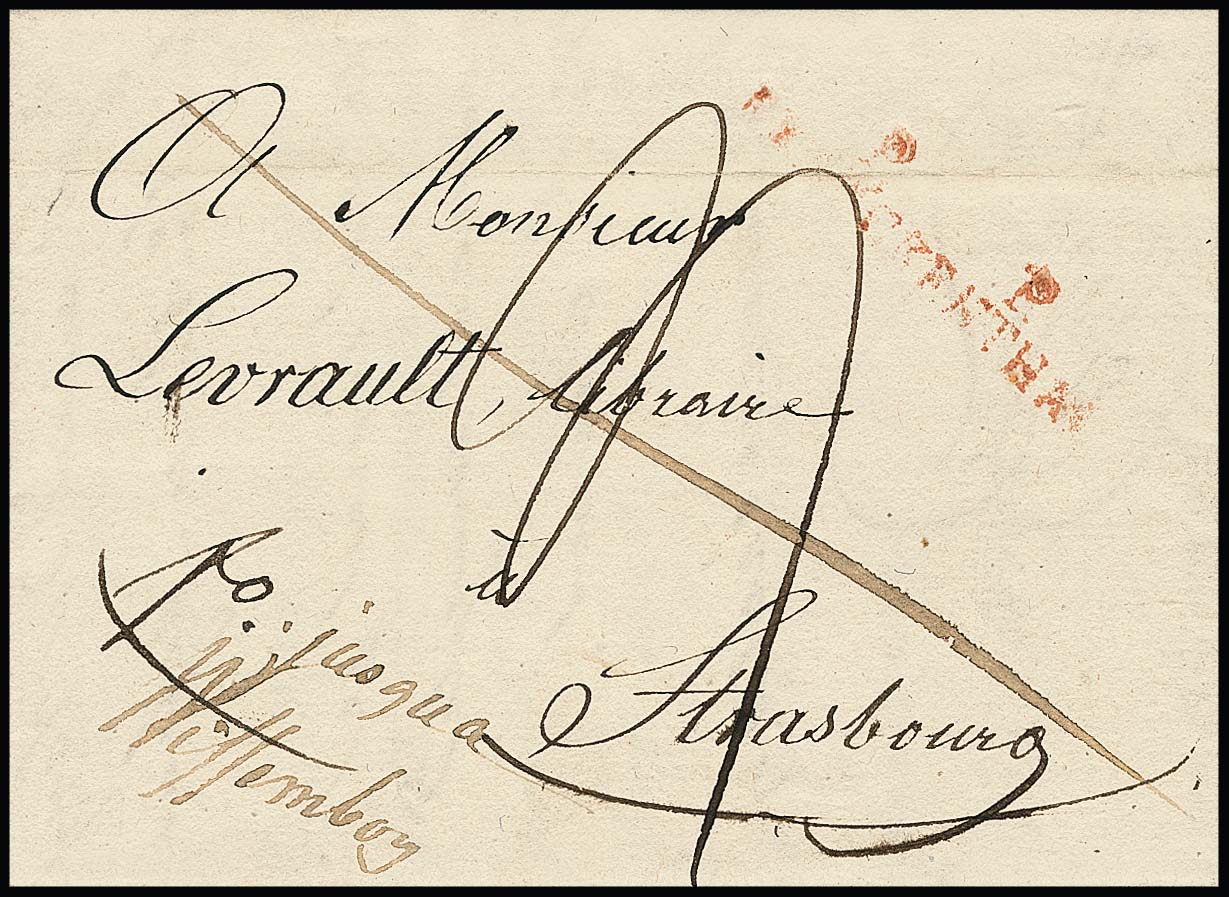 A Monsieur
Levrault, libraire
à
Strasbourg
jusqua
Wissembog